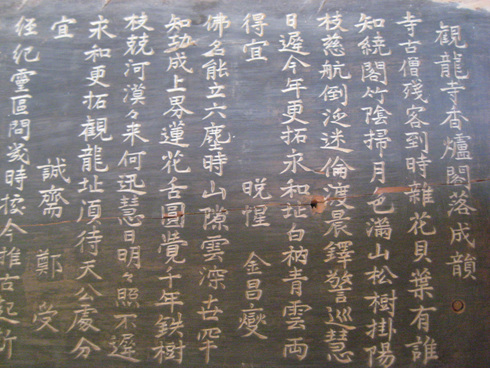 觀龍寺香爐閣落成韻
寺古僧残客到時雜花貝葉有誰
知繞閣竹陰掃月色滿山松樹掛陽
枝慈航倒泛迷倫渡晨鐸警巡慧
日遲今年更拓求和址白柄青雲両
得宜 晩惺 金昌燮
佛名能立六塵時山隙雲深世罕
知功成上界蓮花去圓覺千年鉄樹
枝競河漠々来何迅慧日明々照不遲
求和更拓觀龍址湏待天公處分
宜 誠齋 鄭 受
紀霊區問幾時按今推古起所